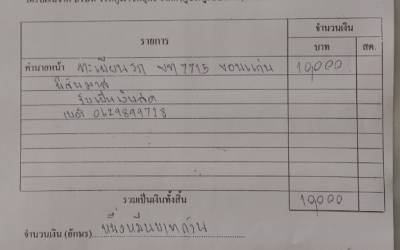 จำนวนเงิน
รายการ
บาท
สต.
ค่านายหน้า ทะเบียนรถ ขก 7715 ขอนแก่น 10,000
รับเป็นเงินสด
เบอร์ 0629899728
รวมเป็นเงินทั้งสิ้น 10,000
จำนวนเงิน (อักษร) หนึ่งหมื่นบาทถ้วน